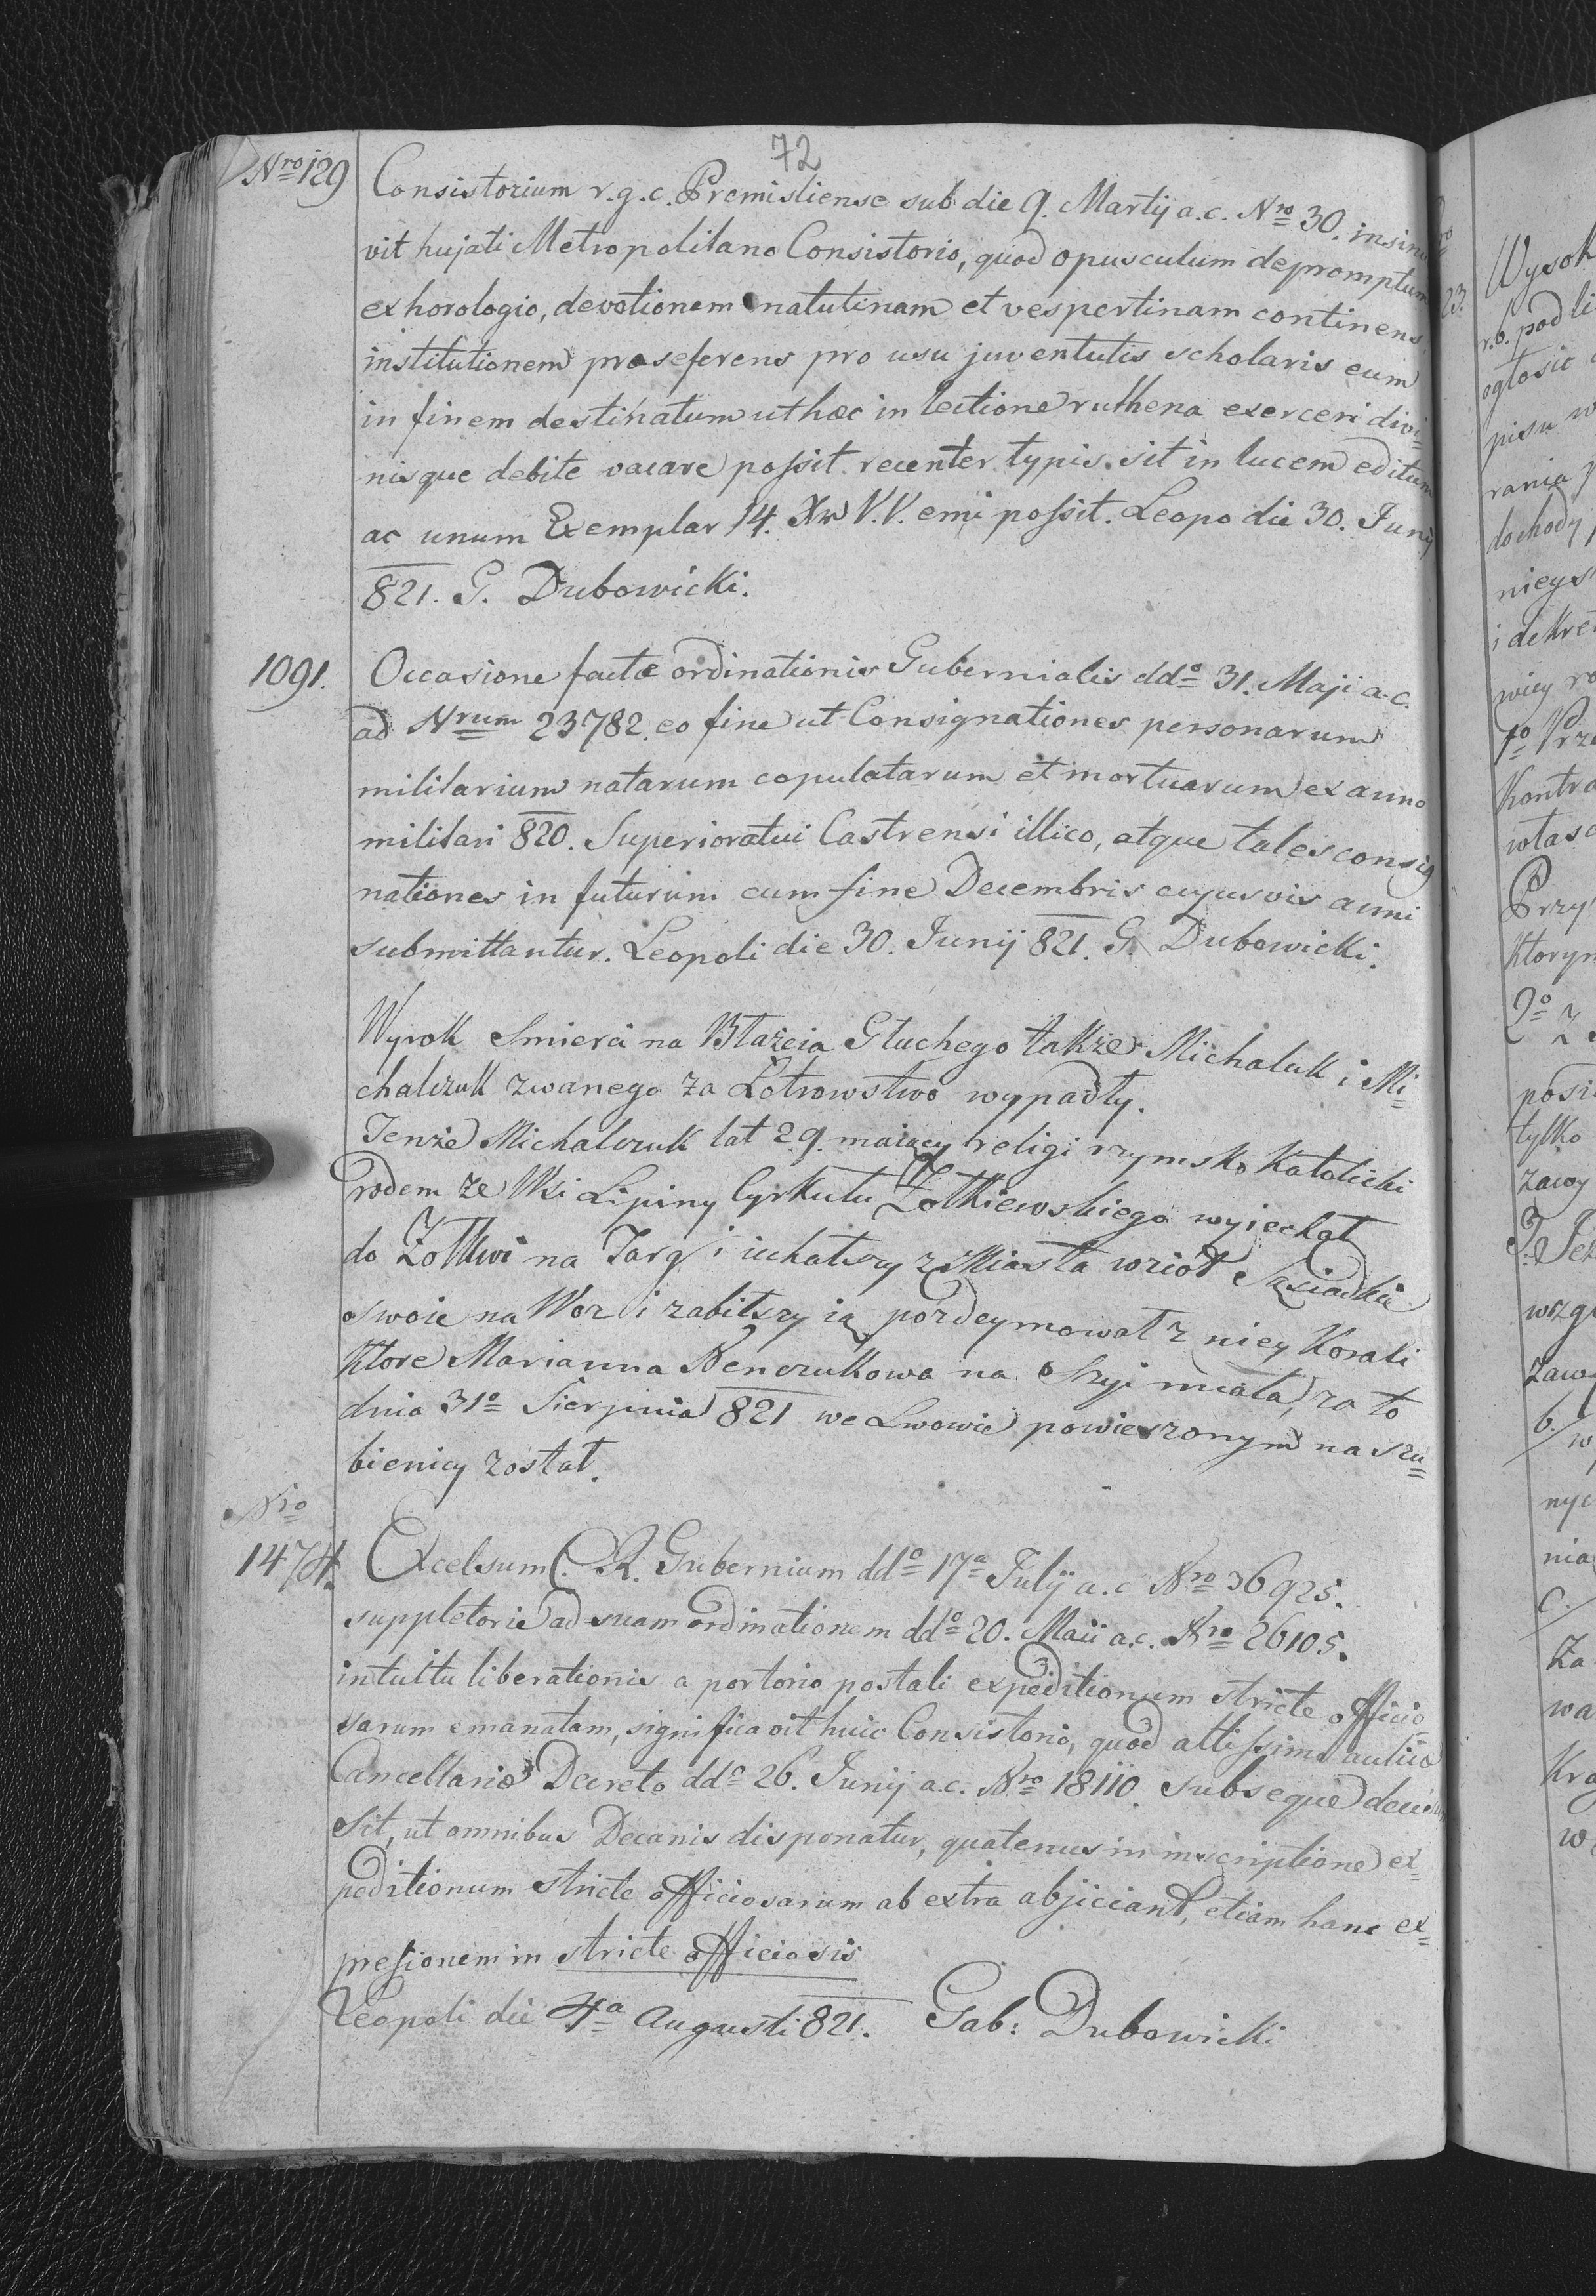 72
Nro 129 Consistorium r.g.c. Premisliense sub die 9. Martij a.c. Nro 30. insinu
vit hujati Metropolitano Consistorio, quod opusculum depromptum
ex horologio, devotionem matutinam et vespertinam continens,
institutionem praeseferens pro usu juventutis scholaris eum
in finem destinatum ut haec in lectione ruthena exerceri divi=
nisque debite vacare possit recenter typis sit in lucem editum
ac unum Exemplar 14. Xr V.V. emi possit. Leopo die 30. Junij
821. G. Dubowicki.
1091. Occasione factae ordinationis Gubernialis ddo 31. Maji a.c.
ad Nrum 23782. eo fine ut Consignationes personarum
militarium natarum copulatarum et mortuarum ex anno
militari 820. Superioratui Castrensi illico, atque tales consig
nationes in futurum cum fine Decembris cujusvis anni
submittantur. Leopoli die 30. Junij 821. G. Dubowicki.
Wyrok Smierci na Błażeia Głuchego także Michaluk i Mi=
chalczuk zwanego za Łotrowstwo wypadły.
Tenże Michalczuk lat 29. maiący religi rzymsko Katolicki
rodem ze Wsi Lipiny Cyrkułu Żołkiewskiego wyiechał
do Żołkwi na Targ i iechatszy z Miasta wzioł Sąsiadkie
swoie na Woz i zabitszy ią pozdeymował z niey Korali
ktore Marianna Nenczukowa na Szyi miała, za to
dnia 31o Sierpnia 821 we Lwowie powieszonym na szu=
bienicy został.
Nro
1474. Excelsum C. R. Gubernium ddo 17a Julij a.c Nro 36925.
suppletorie ad suam ordinationem ddo 20. Maii a.c. Nro 26105.
intuitu liberationis a portorio postali expeditionum stricte officio
sarum emanatam, significavit huic Consistorio, quod altissimo aulico
Cancellariae Decreto ddo 26. Junij a.c. Nro 18110. subseque
sit, ut omnibus Decanis disponatur, quatenus in inscriptione ex=
peditionum stricte officiosarum ab extra abjiciant, etiam hanc ex=
presionem in stricte officiosis
Leopoli die 4a Augusti 821. Gab: Dubowicki
23.
Wysok
r.b. pod li
ogłosić
pisu w
rania
dochody
nieys
i dekre
wiey ro
1o Prze
Kontra
własc
Przy
Ktorym
2o Z
posi
tylko
zawy
3. Jeż
wzgl
zawy
b./ w
nyc
nia
c./
Za
wa
Kra
w